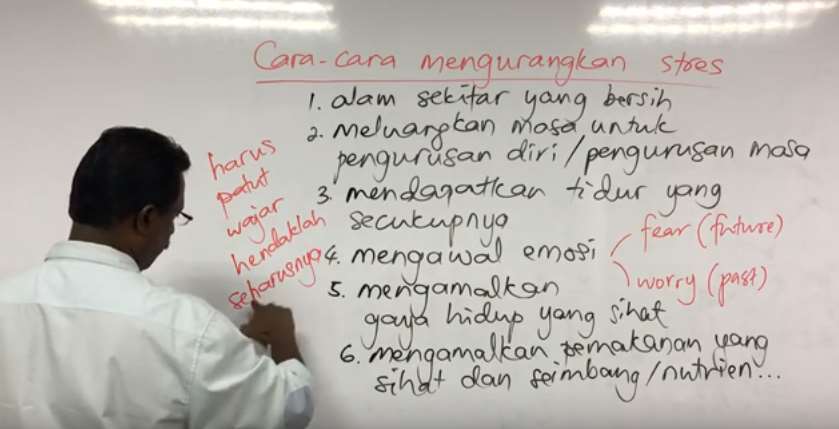 Cara-cara mengurangkan stres
1. alam sekitar yang bersih
2. meluangkan masa untuk
pengurusan diri/pengurusan masa
3. mendapatkan tidur yang
secukupnya
4. mengawal emosi
fear (future)
worry (past)
5. mengamalkan
gaya hidup yang sihat
6. mengamalkan pemakanan yang
sihat dan seimbang/nutrien...
harus
patut
wajar
hendaklah
seharusnya